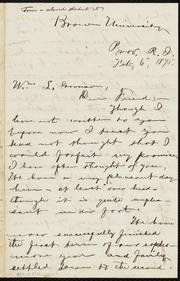 From a colored student at
Brown University
Prov. R. I.
Feb. 6, 1875.
Wm. L. Garrison,
Dear Friend:—
Though I
have not written to you
before now I trust you
had not thought that I
would forfeit my promise.
I have often thought of you.
We have a very pleasant day
here – at least one
though it is quite
under foot.
We have
now successfully finished
the first term of our soph-
more year and fairly
settled down to the second.